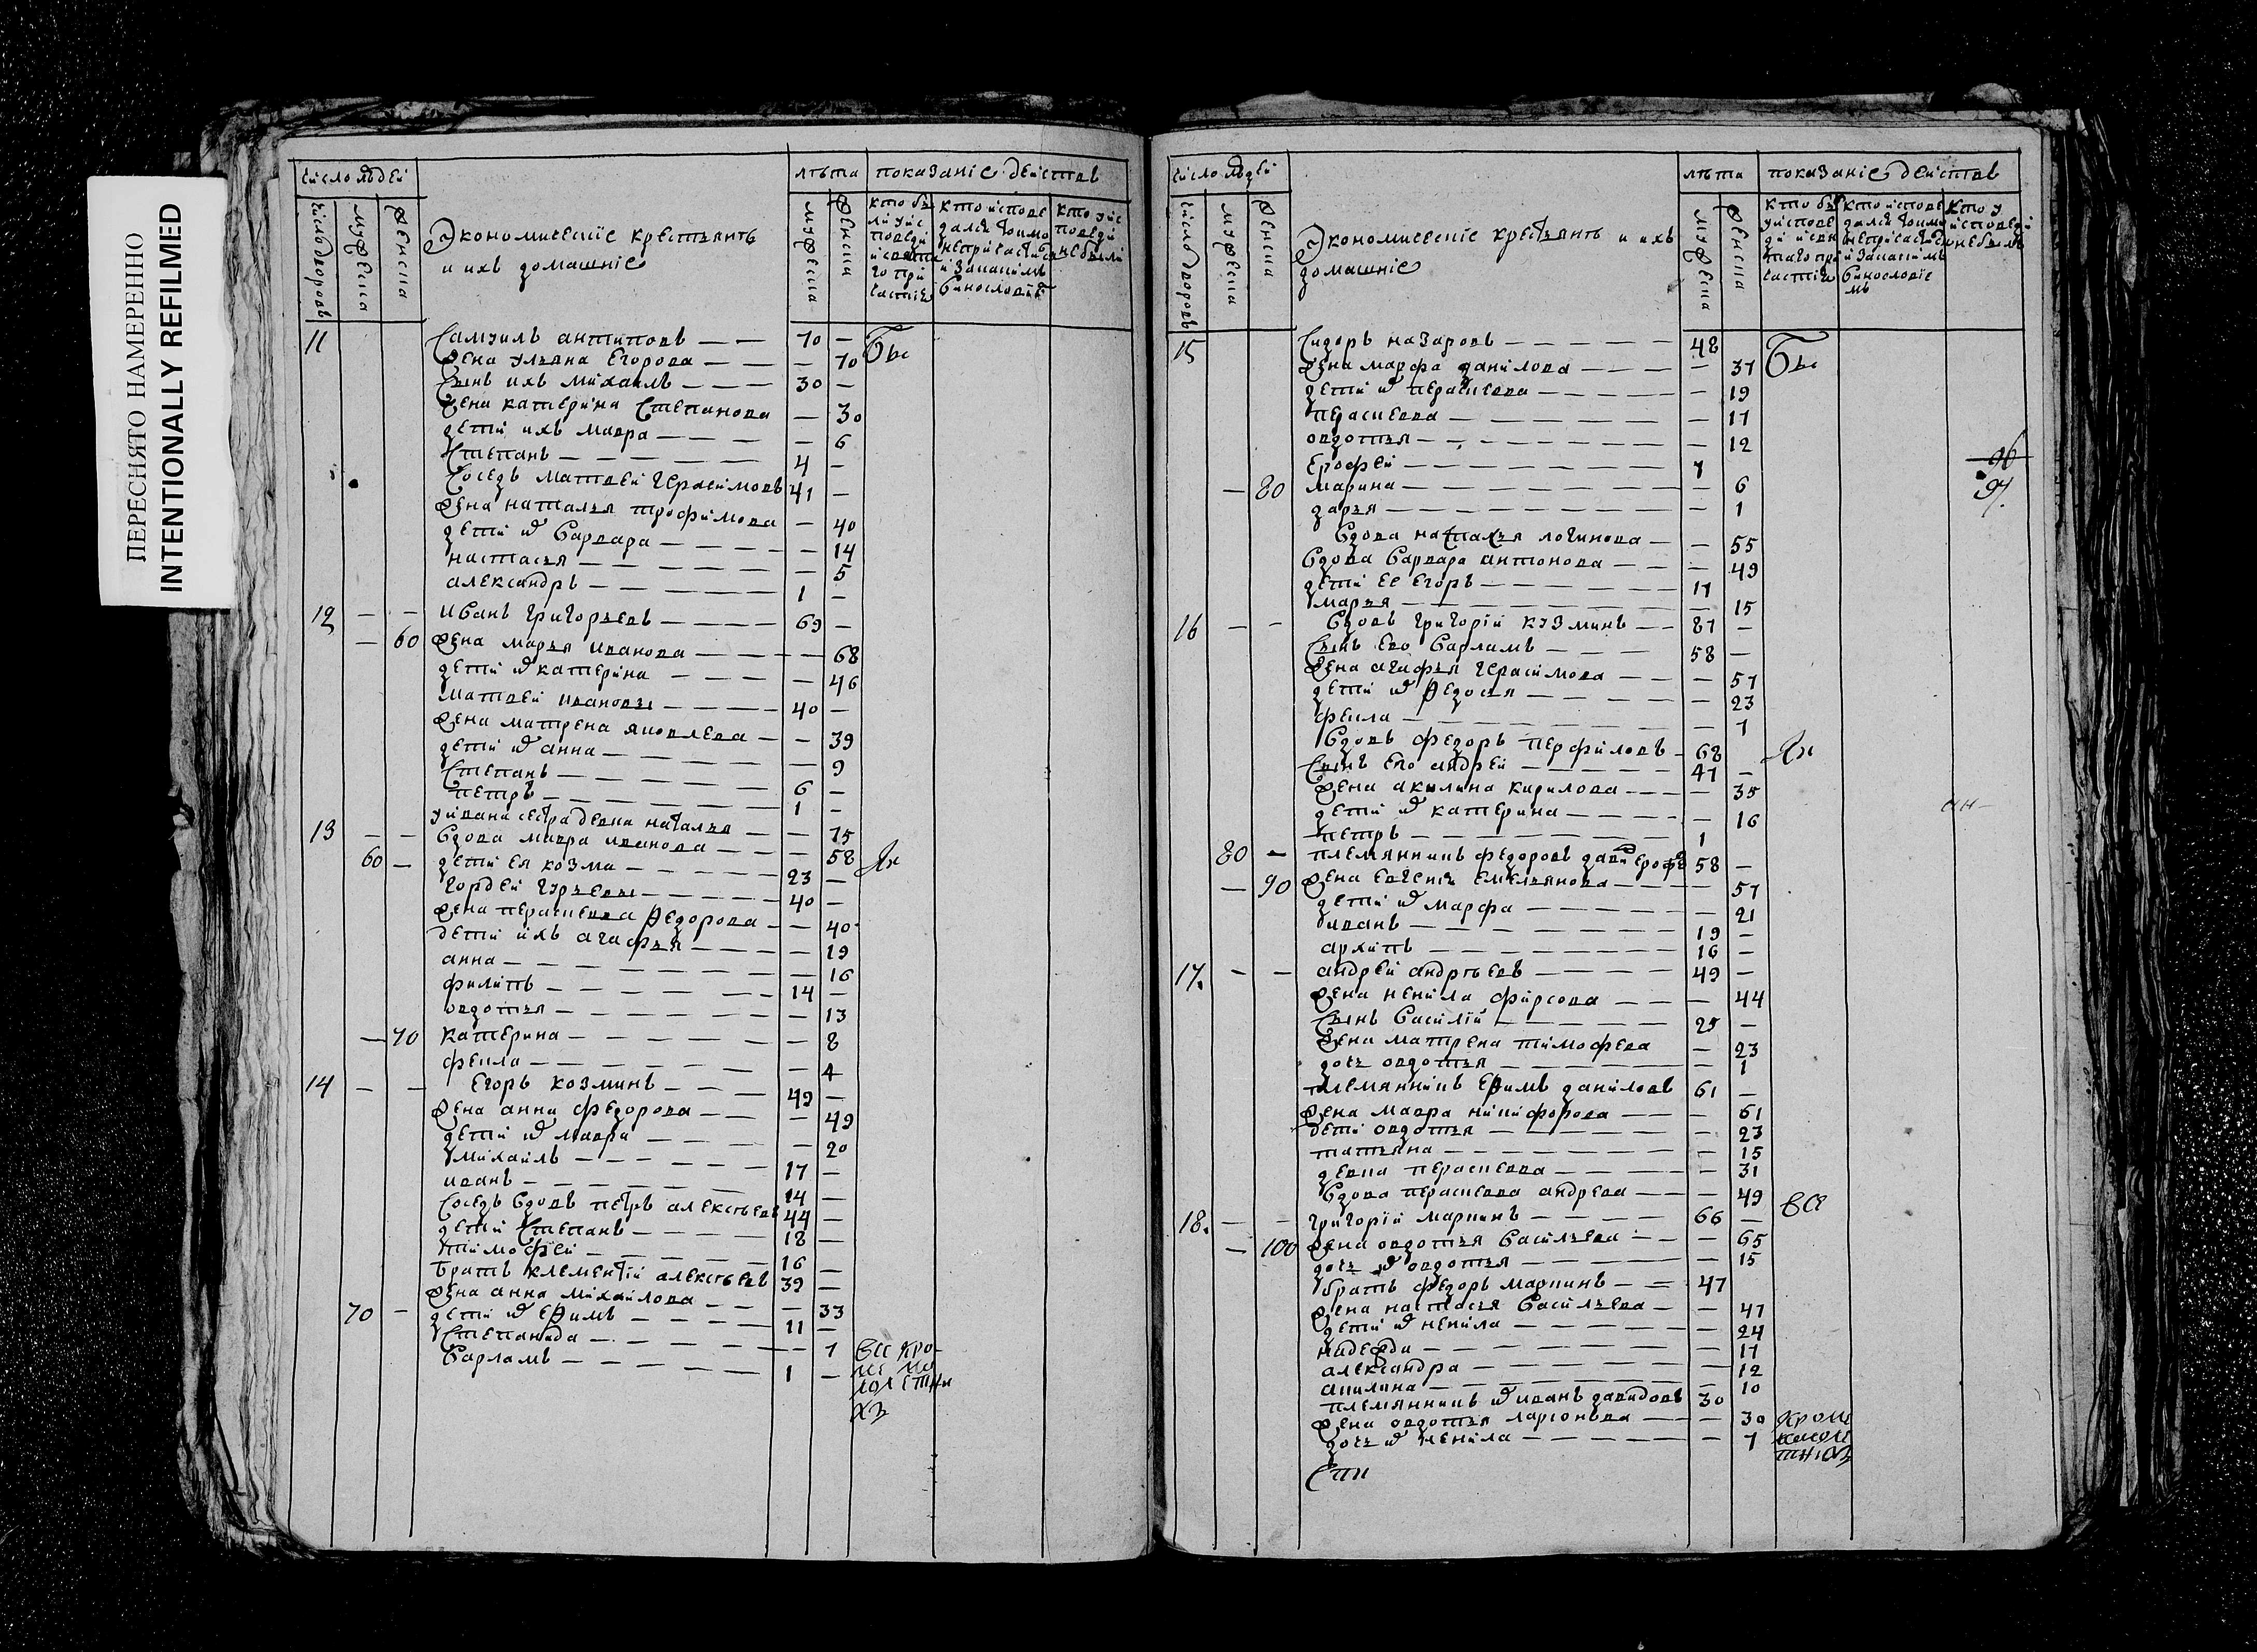 ПЕРЕСНЯТО НАМЕРЕННО
INTENTIONALLY REFILMED
число людей
лѣта
показаніе действ
число дворовъ
мужеска
женска
Экономическіе крестьянъ
и ихъ домашніе
мужеска
женска
кто бы
ли у ис
поведи
и свята
го при
частія
кто испове
дался токмо
не причастился
и за какимъ
винословіе
кто у ис
поведи
не были
11 Самуилъ антиповъ — — 70 — Бы
Жена ульяна Егорова — — — 70
Сынъ ихъ михаилъ — — — 30 —
Жена катерина Степанова — 30
дети ихъ мавра — — — — 6
Степанъ — — — — — 4 —
Соседъ матвей герасимовъ 41 —
Жена наталья трофимова — 40
дети их Варвара — — — — 14
настасья — — — — — 5
александръ — — — — — 1 —
12 — — Иванъ григорьевъ — — — — 69 —
— 60 Жена марья иванова — — — — 68
дети их катерина — — — — 46
матвей ивановъ — — — — 40 —
Жена матрена яковлева — — 39
дети их анна — — — — — 9
Степанъ — — — — — 6 —
петръ — — — — — 1 —
у ивана сестра девка наталья — — 75
13 — — Вдова мавра иванова — — — — 58
60 — дети ея козма — — — — — 23 —
гордей гурьевъ — — — — 40 —
Жена парасковья Федорова — — 40
дети ихъ агафья — — — — 19
анна — — — — — — 16
филипъ — — — — — — 14 —
овдотья — — — — — — 13
— 70 катерина — — — — — — 8
фекла — — — — — — 4
14 — — Егоръ козминъ — — — 49 —
Жена анна федорова — — — 49
дети их мавра — — — — 20
михаилъ — — — — — 17 —
иванъ — — — — — 14 —
Соседъ Вдовъ петръ алексѣевъ 44 —
дети Степанъ — — — — 18 —
тимофей — — — — — 16 —
братъ клементій алексѣевъ 39 —
Жена анна михайлова — — — 33
70 — дети их ефимъ — — — — 11 —
Степанида — — — — — 7
Варламъ — — — — — 1 —
все кро
ме ма
лолетны
хъ
число людей
лѣта
показаніе действ
число дворовъ
мужеска
женска
Экономическіе крестьянъ и ихъ
домашніе
мужеска
женска
кто бы
у испове
ди и свя
таго при
частія
кто испове
дался токмо
не причастился
и за какимъ
винословіе
мъ
кто у
исповеди
не былъ
15 Сидоръ назаровъ — — — — — 48 Бы
Жена марфа данилова — — — — 37
дети их парасковья — — — — — 19
парасковья — — — — — 17
овдотья — — — — — — 12
Ерофей — — — — — — 7
— 80 марина — — — — — — 6
дарья — — — — — — 1
96
97
Вдова наталья логинова — — 55
Вдова Варвара антонова — — — 49
дети ее Егоръ — — — — 17
марья — — — — — — — 15
16 — — Вдовъ григорій кузминъ — — 87 —
Сынъ его Варламъ — — — 58 —
Жена агафья герасимова — — — 57
дети их Федосья — — — — — 23
фекла — — — — — — — 7
Вдовъ федоръ перфиловъ — 68
Сынъ его андрей — — — — — 47 —
Жена акилина кирилова — — — — 35
дети их катерина — — — — — 16
петръ — — — — — — — 1
80 — племянникъ федоровъ 58 —
— 90 Жена евгенія емельянова — — — — 57
дети их марфа — — — — — — 21
иванъ — — — — — — 19 —
архипъ — — — — — — 16 —
17. — — андрей андрѣевъ — — — — 49 —
Жена ненила фирсова — — — 44
Сынъ Василій — — — — — 25 —
Жена матрена тимофева — 23
дочь овдотья — — — — — — 1
племянникъ ефимъ даниловъ 61 —
Жена мавра никифорова — — — 61
дети овдотья — — — — — — 23
татьяна — — — — — — — 15
девка парасковья — — — — — 31
Вдова парасковья андрева — — — 49
18. — — григорій маркинъ — — — — 66 — все
— 100 Жена овдотья Васильева — — — 65
дочь их овдотья — — — — — 15
братъ федоръ маркинъ — — 47
Жена настасья Васильева — — 47
дети их ненила — — — — — 24
надежда — — — — — — — 17
александра — — — — — — 12
акилина — — — — — — — 10
племянникъ их иванъ давидовъ 30
Жена овдотья ларіонова — — — 30 кроме
дочь их ненила — — — — — — 7